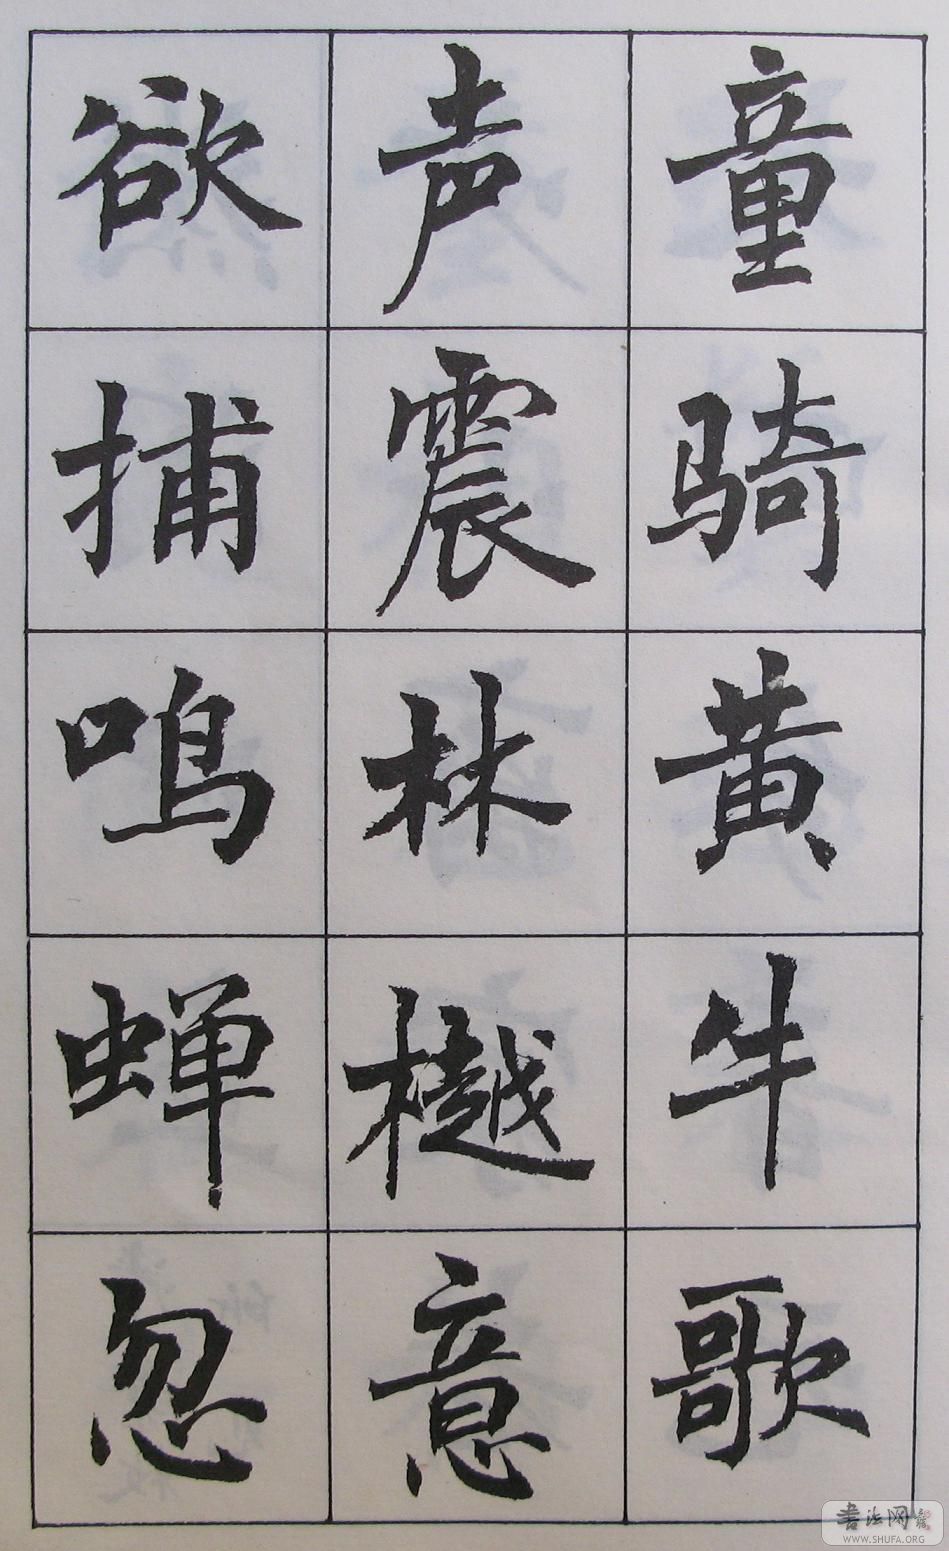 童骑黄牛歌
声震林樾意
欲捕鸣蝉忽
書法网
WWW.SHUFA.ORG